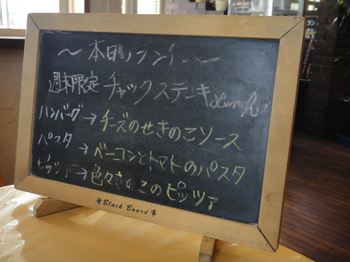 ～本日ノランチー～
週末限定 チャックステーキ
ハンバーグ→チーズのせきのこソース
パスタ→ベーコンとトマトのパスタ
ピッツァ→色々きのこのピッツァ
Black Board